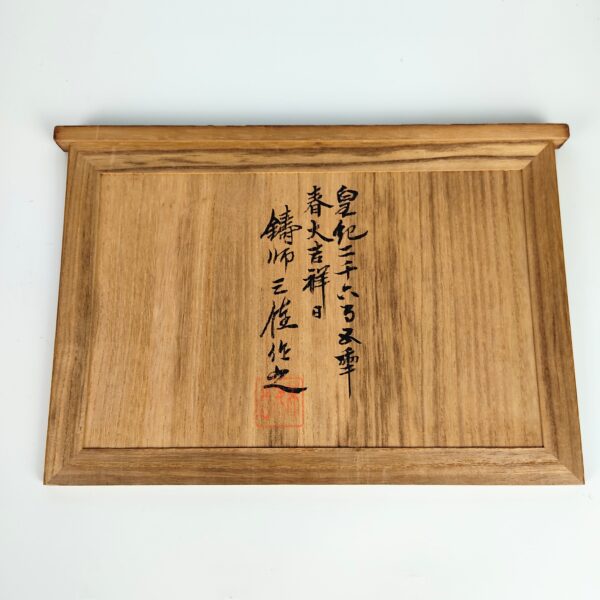 皇紀二千六百五年
春大吉祥日
鑄師三佳作之